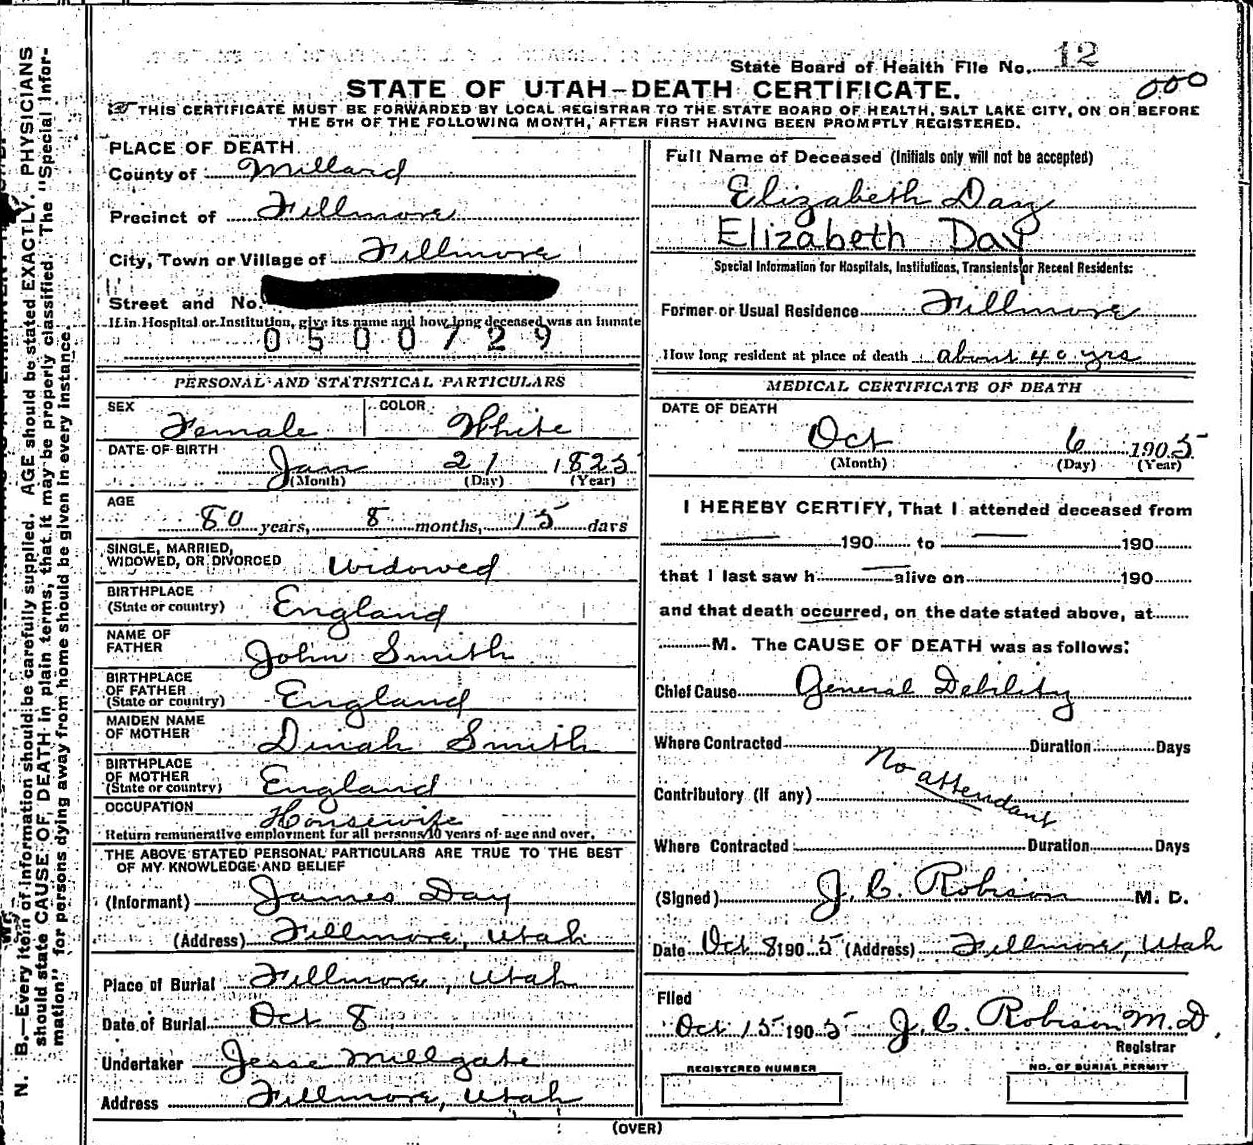 State Board of Health File No. 12
000
STATE OF UTAH-DEATH CERTIFICATE.
THIS CERTIFICATE MUST BE FORWARDED BY LOCAL REGISTRAR TO THE STATE BOARD OF HEALTH, SALT LAKE CITY, ON OR BEFORE
THE 5TH OF THE FOLLOWING MONTH, AFTER FIRST HAVING BEEN PROMPTLY REGISTERED.
PLACE OF DEATH
County of Millard
Precinct of Fillmore
City, Town or Village of Fillmore
Street and No.
If in Hospital or Institution, give its name and how long deceased was an inmate
0500729
PERSONAL AND STATISTICAL PARTICULARS
SEX Female COLOR White
DATE OF BIRTH Jan 21 1825
(Month) (Day) (Year)
AGE
80 years, 8 months, 15 days
SINGLE, MARRIED,
WIDOWED, OR DIVORCED Widowed
BIRTHPLACE
(State or country) England
NAME OF
FATHER John Smith
BIRTHPLACE
OF FATHER
(State or country) England
MAIDEN NAME
OF MOTHER Dinah Smith
BIRTHPLACE
OF MOTHER
(State or country) England
OCCUPATION Housewife
Return remunerative employment for all persons 10 years of age and over.
THE ABOVE STATED PERSONAL PARTICULARS ARE TRUE TO THE BEST
OF MY KNOWLEDGE AND BELIEF
(Informant) James Day
(Address) Fillmore, Utah
Place of Burial Fillmore, Utah
Date of Burial Oct 8
Undertaker Jesse Millgate
Address Fillmore, Utah
Full Name of Deceased (Initials only will not be accepted)
Elizabeth Day
Elizabeth Day
Special Information for Hospitals, Institutions, Transients or Recent Residents:
Former or Usual Residence Fillmore
How long resident at place of death about 40 yrs
MEDICAL CERTIFICATE OF DEATH
DATE OF DEATH
Oct 6 1905
(Month) (Day) (Year)
I HEREBY CERTIFY, That I attended deceased from
190 to 190
that I last saw h alive on 190
and that death occurred, on the date stated above, at
M. The CAUSE OF DEATH was as follows:
Chief Cause General Debility
Where Contracted Duration Days
No attendant
Contributory (if any)
Where Contracted Duration Days
(Signed) J. C. Robison M. D.
Date Oct 8 1905 (Address) Fillmore, Utah
Filed
Oct 15 1905 J. C. Robison M.D.
Registrar
REGISTERED NUMBER NO. OF BURIAL PERMIT
(OVER)
N. B.—Every item of information should be carefully supplied. AGE should be stated EXACTLY. PHYSICIANS
should state CAUSE OF DEATH in plain terms, that it may be properly classified. The "Special Infor-
mation" for persons dying away from home should be given in every instance.